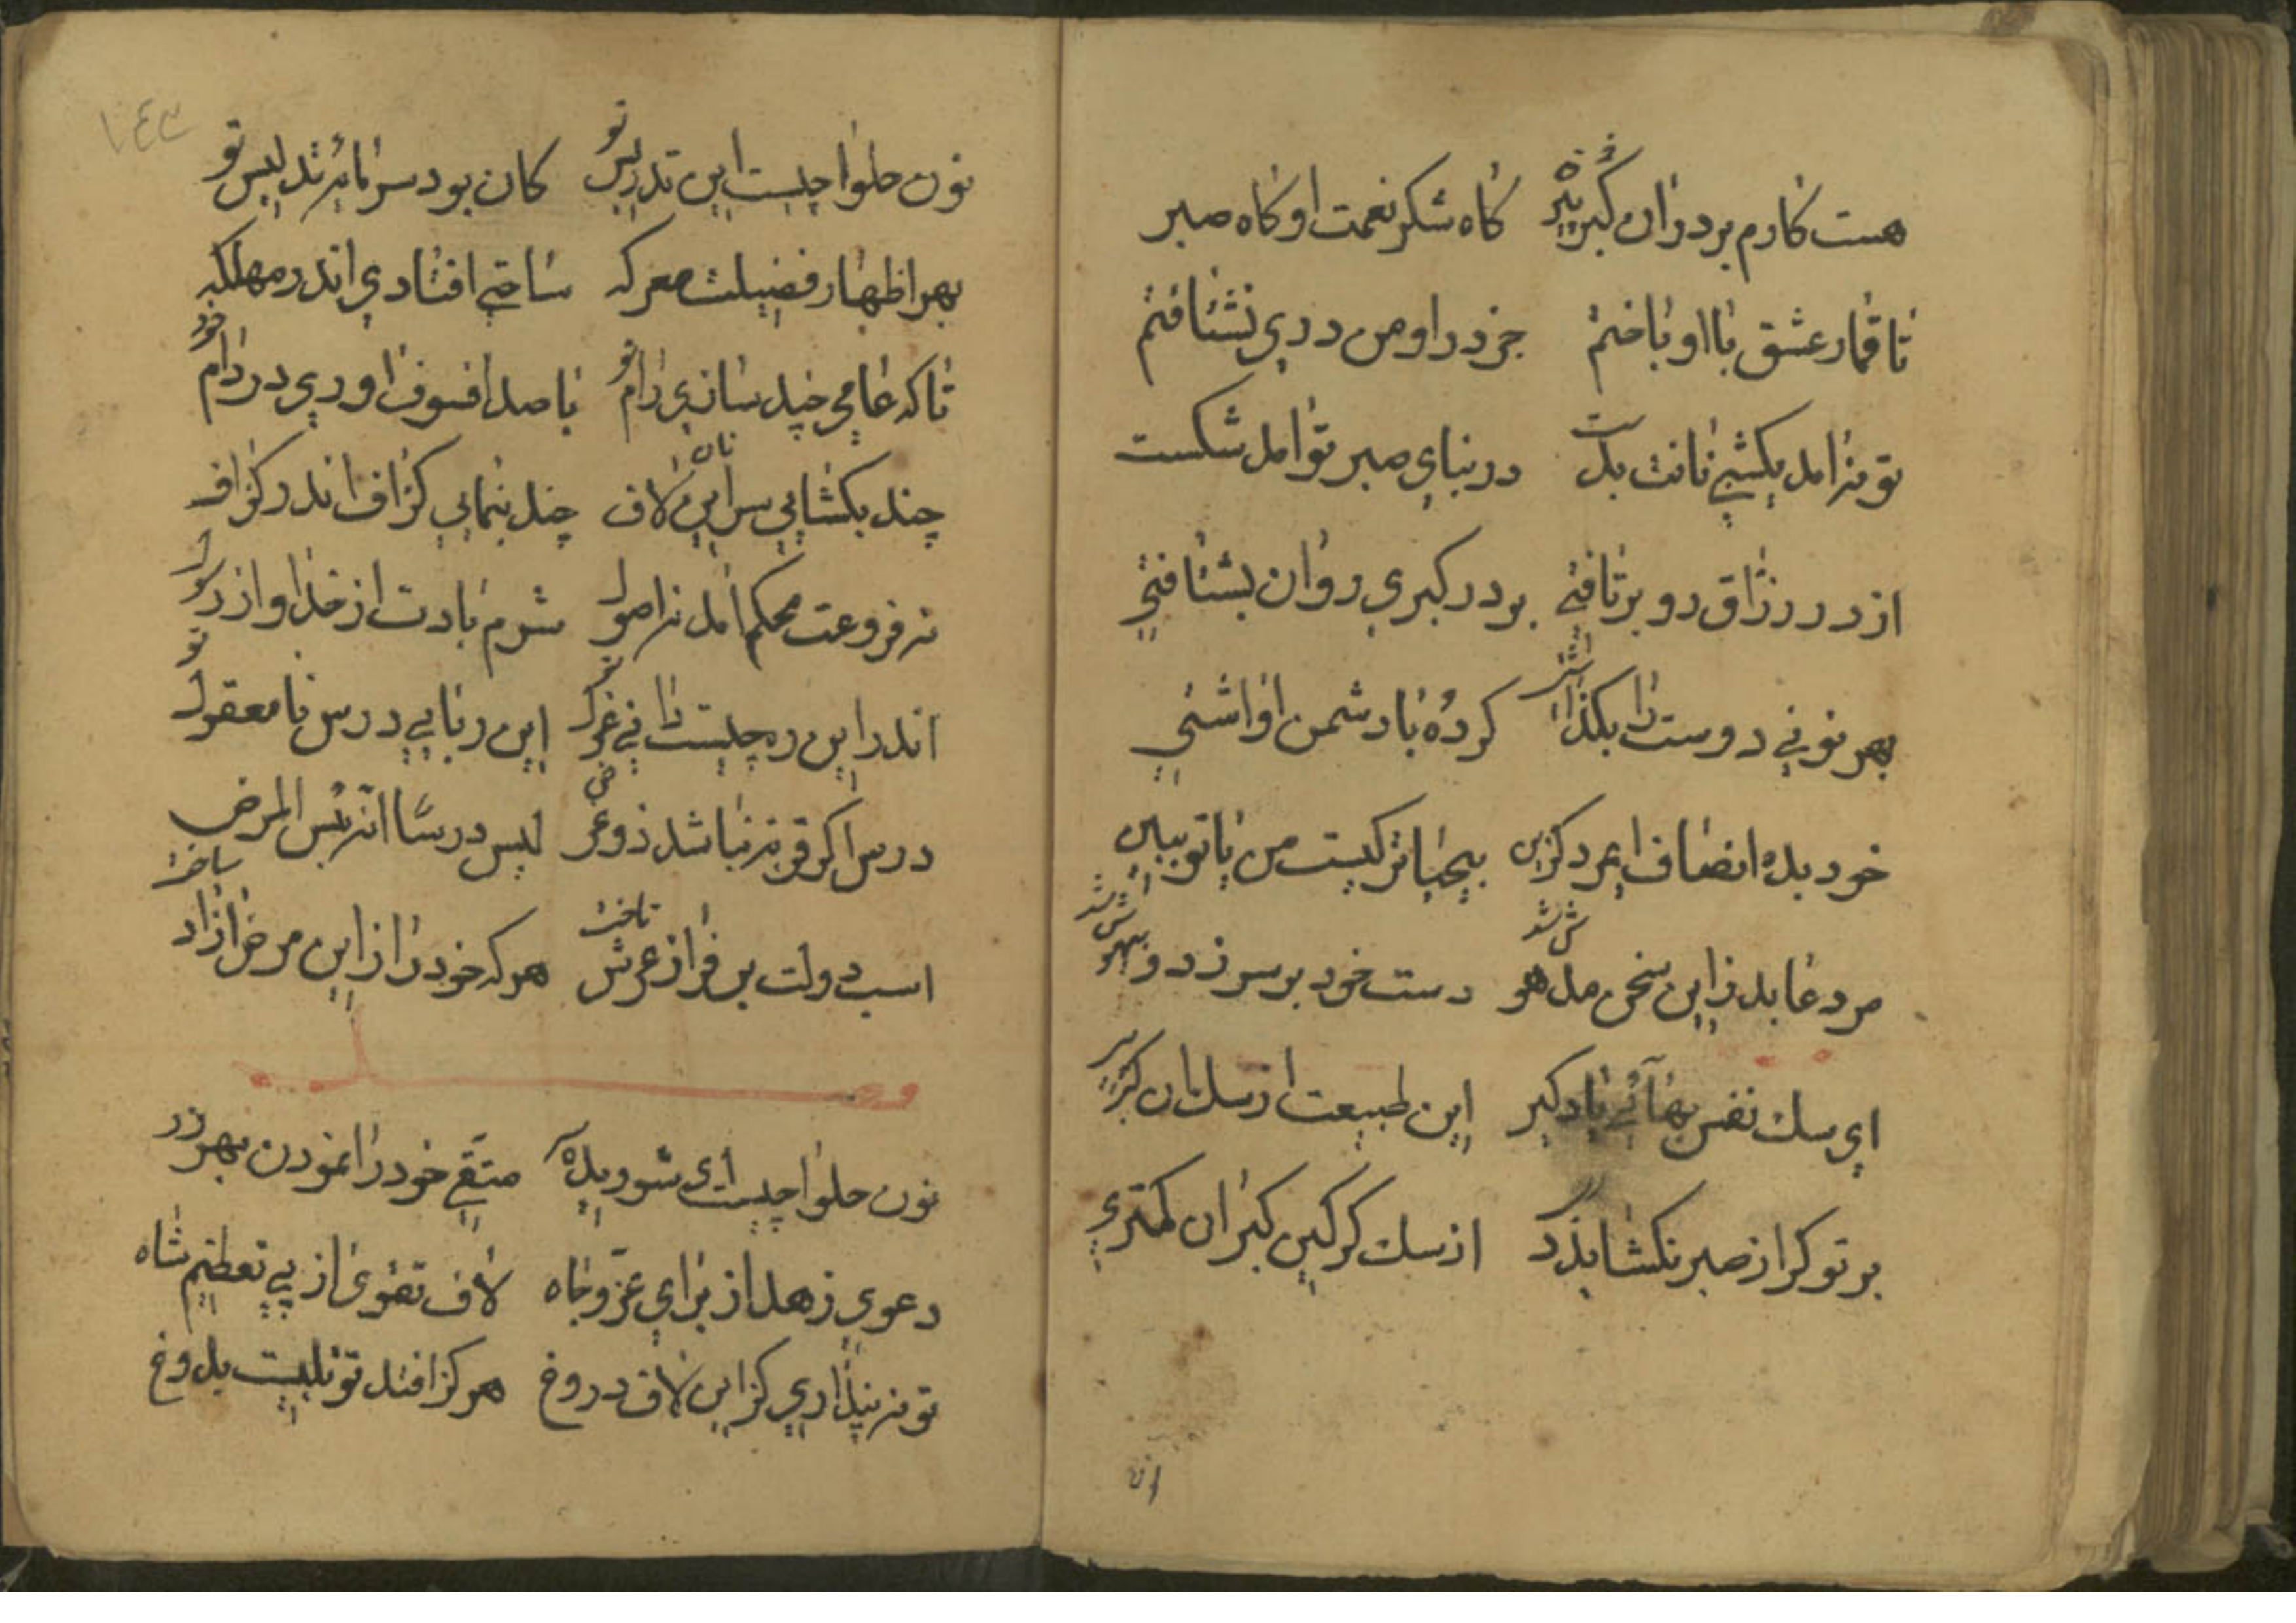 هست کارم بر در ان کبر پیر کاه شکر نعمت او کاه صبر
تا قمار عشق با او باختم جز در او من دری نشتافتم
تو نه امد یکشبی نانت بدست در بنای صبر تو امد شکست
از در رزاق رو بر تافتی بر در کبری روان بشتافتی
بهر نونی دوست را بکذاشتی کرده با دشمن او اشتی
خود بده انصاف ای مرد کزین بیحیاتر کیست من یا تو ببین
مرد عابد زاین سخن مدهوش شد دست خود بر سر زد و بیهوش شد
ای سك نفس بهائی یاد کیر این طبیعت از سك ان کبر پیر
بر تو کر از صبر نکشاید دری از سك کرکین کبران کمتری
ان
١٤٣
نون حلوا چیست این تدریس تو کان بود سرمایه تدلیس تو
بهر اظهار فضیلت معرکه ساختی افتادی اندر مهلکه
تا که عامی چند سازی رام تو با صد افسون اوری در دام خود
چند بکشایی سر انبان لاف چند پنمایی کزاف اندر کزاف
نه فروعت محکم امد نه اصول شرم بادت از خدا و از رسول
اندر این ره چیست دانی غول تو این ریایی درس نا معقول تو
درس اکر قربه نباشد زو غرض لیس درسا انه بئس المرض
اسب دولت بر فراز عرش تاخت هر که خود را از این مرض ازاد ساخت
نون حلوا چیست ای شوریده سر متقی خود را نمودن بهر زر
دعوی زهد از برای عز و جاه لاف تقوی از پی تعظیم شاه
تو نه پنداری کز این لاف دروغ هرکز افتد تو تلبیت بدوغ